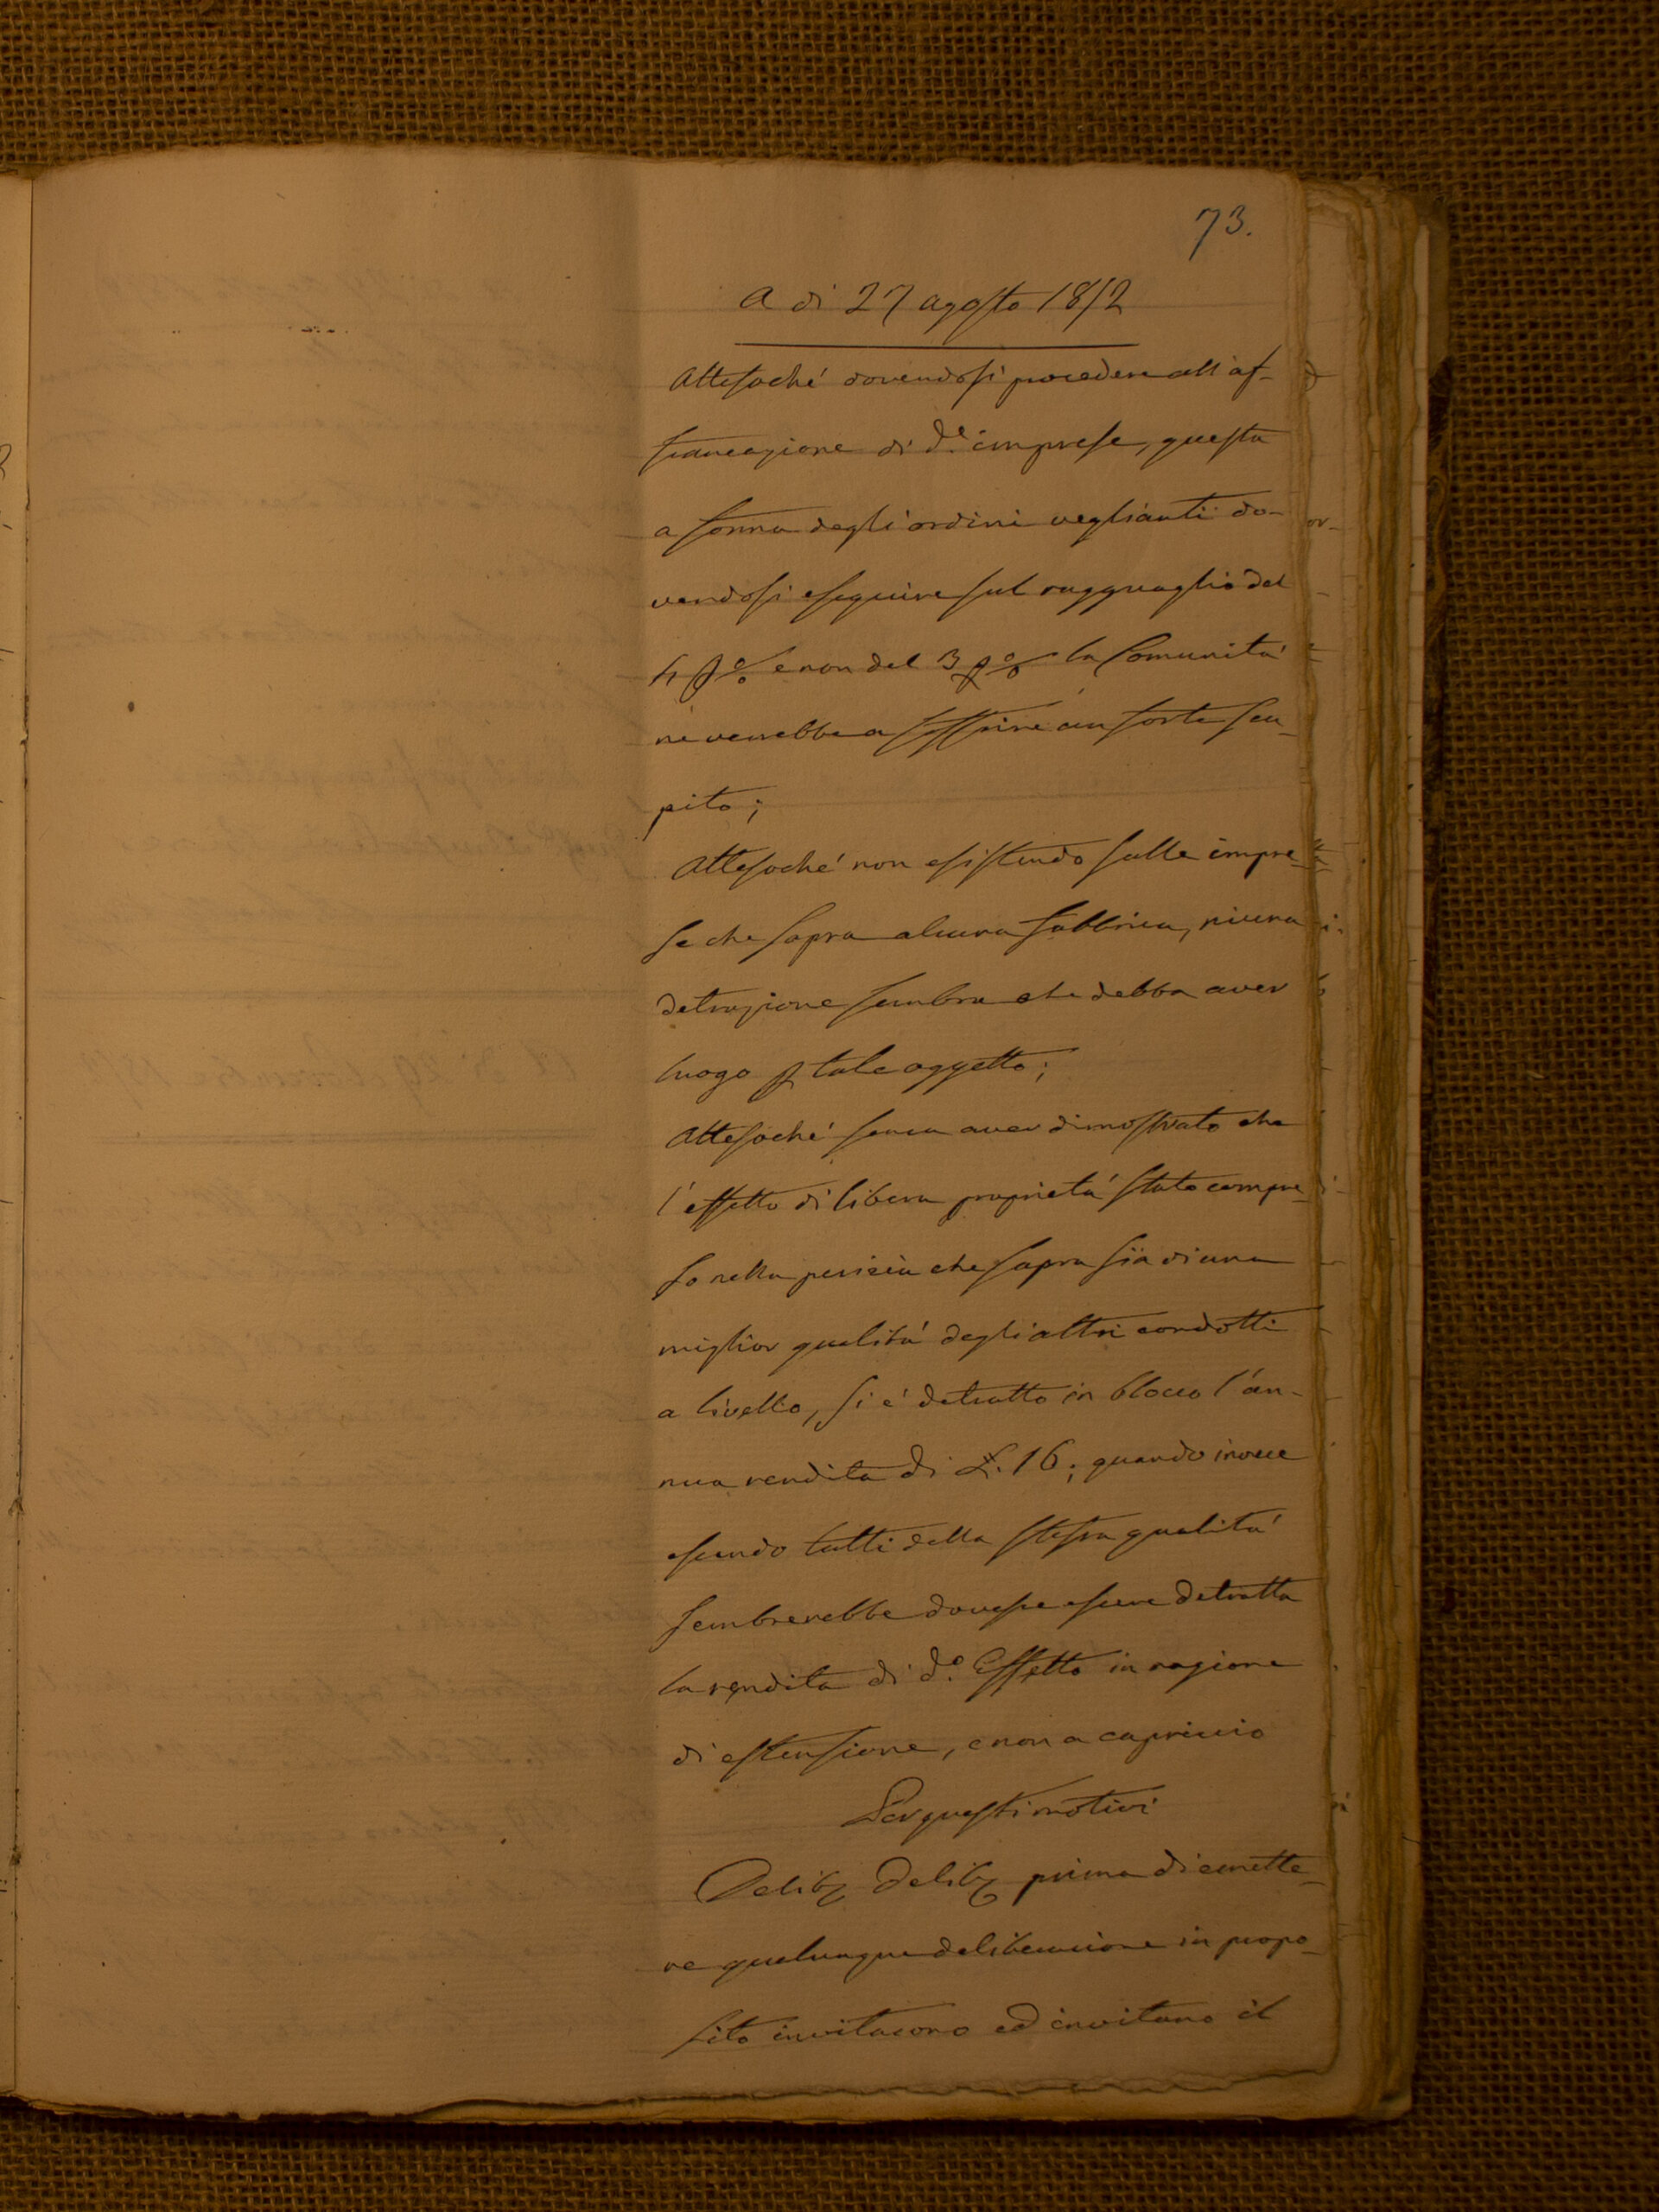 73.
A di 27 agosto 1852
Attesoché dovendosi procedere all'af-
francazione di d.e imprese, questa
a forma degli ordini veglianti do-
vendosi eseguire sul ragguaglio del
4 p% e non del 3 p% la Comunità
ne verrebbe a soffrire un forte sca-
pito;
Attesoché non esistendo sulle impre-
se che sopra alcuna fabbrica, niuna
detrazione sembra che debba aver
luogo p tale oggetto;
Attesoché senza aver dimostrato che
l'effetto di libera proprietà stato compre-
so nella perizia che sopra sia di una
miglior qualità degli altri condotti
a livello, si è detratto in blocco l'an-
nua rendita di £. 16; quando invece
essendo tutti della stessa qualità
sembrerebbe dovesse essere detratta
la rendita di d.o Effetto in ragione
di estensione, e non a capriccio
Per questi motivi
Delib. Delib. prima di emette-
re qualunque deliberazione in propo-
sito invitarono ed invitano il